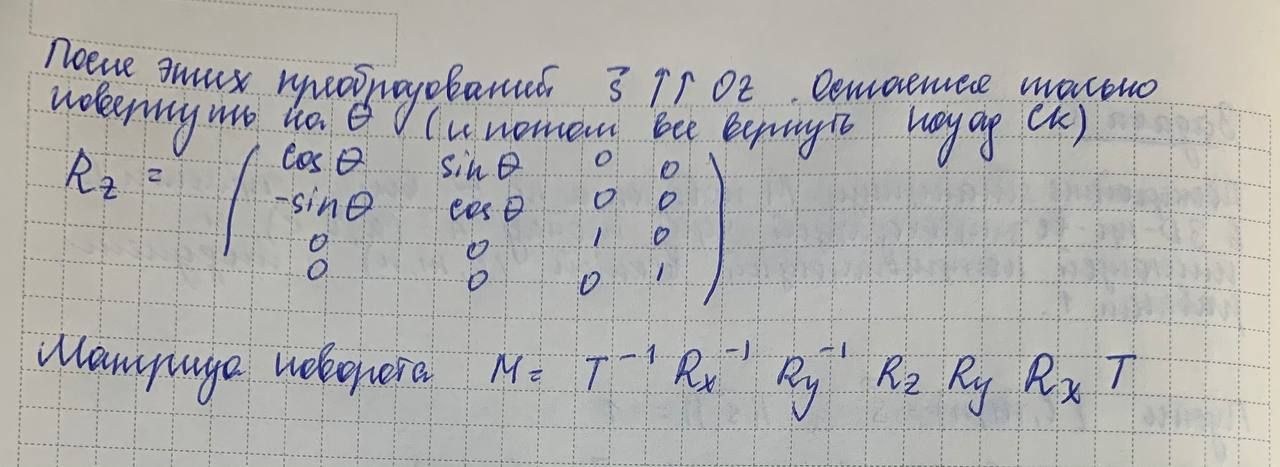 После этих преобразований s⃗ ↑↑ Oz. Остается только
повернуть на θ (и потом все вернуть назад СК)
Rz = ( cos θ sin θ 0 0
-sin θ cos θ 0 0
0 0 1 0
0 0 0 1 )
Матрица поворота M = T⁻¹ Rx⁻¹ Ry⁻¹ Rz Ry Rx T